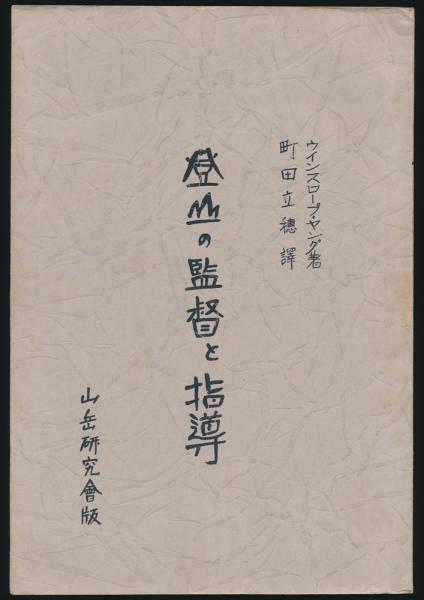 ウインスロープ・ヤング著
町田立穂譯
登山の監督と指導
山岳研究會版